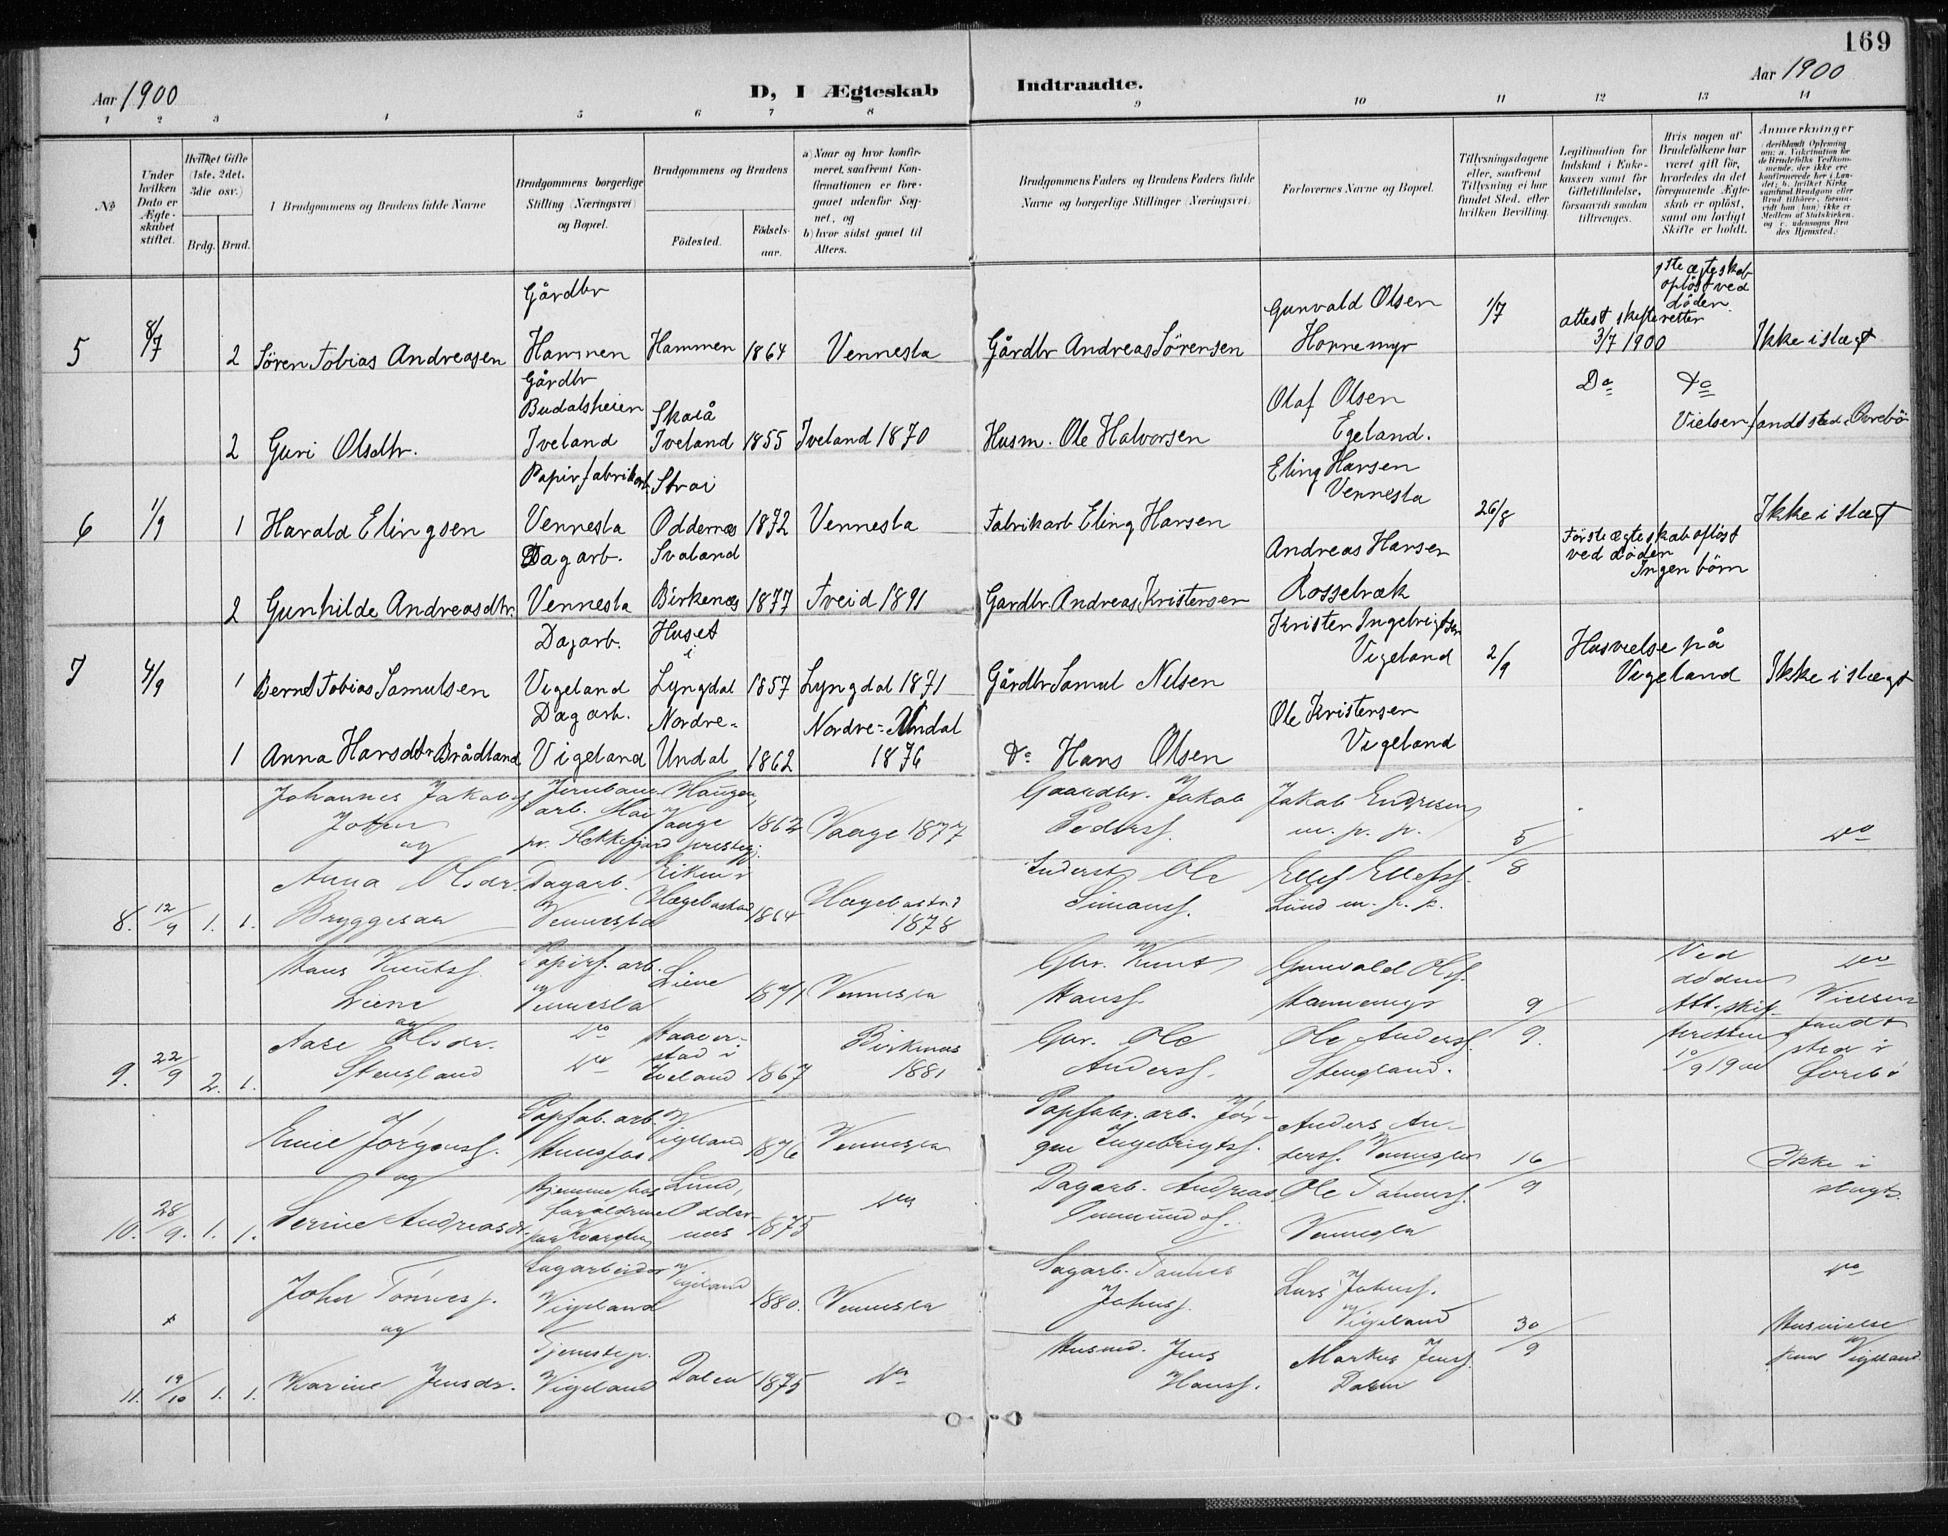 169
Aar 1900
D, I Ægteskab Indtraadte.
Aar 1900
1 2 3 4 5 6 7 8 9 10 11 12 13 14
No
Under hvilken Dato er Ægteskabet stiftet.
Hvilket Gifte (1ste, 2det, 3die osv.)
Brdg. Brud.
Brudgommens og Brudens fulde Navne
Brudgommens borgerlige Stilling (Næringsvei) og Bopæl.
Brudgommens og Brudens
Födested.
Födselsaar.
a) Naar og hvor konfirmeret, saafremt Konfirmationen er foregaaet udenfor Sognet, og
b) hvor sidst gaaet til Alters.
Brudgommens Faders og Brudens Faders fulde Navne og borgerlige Stillinger (Næringsvei)
Forlovernes Navne og Bopæl.
Tillysningsdagene eller, saafremt Tillysning ei har fundet Sted, efter hvilken Bevilling.
Legitimation for Indskud i Enkekassen samt for Giftetilladelse, forsaavidt saadan tiltrænges.
Hvis nogen af Brudefolkene har været gift för, hvorledes da det foregaaende Ægteskab er oplöst, samt om lovligt Skifte er holdt.
Anmærkninger
5 8/7 2 Sören Tobias Andreasen
Gårdbr
Hammen
Hammen 1864 Vennesla
Gårdbr Andreas Sörensen
Gunvald Olsen
Hommemyr
1/7
attest skifteretten
3/7 1900
1ste ægteskab
oplöst ved
döden
Ikke i slægt
2 Guri Olsdtr.
Gårdbr
Budalsheien
Iveland
Skaiå
Iveland 1855 Iveland 1870
Husm. Ole Halvorsen
Olaf Olsen
Egeland.
Do Do
Vielsen fandt sted i Övrebö
6 1/9 1 Harald Elingsen
Papirfabrikarb
Vennesla
Strai
Oddernæs 1872 Vennesla
Fabrikarb Eling Hansen
Eling Hansen
Vennesla
26/8
Ikke i slægt
2 Gunhilde Andreasdtr.
Dagarb.
Vennesla
Svaland
Birkenæs 1877 Tveid 1891
Gårdbr Andreas Kristensen
Andreas Hansen
Rossebræk
Förste ægteskab oplöst
ved döden
Ingen börn
7 4/9 1 Bernt Tobias Samulsen
Dagarb.
Vigeland
Huset
i
Lyngdal 1857 Lyngdal 1871
Gårdbr Samul Nilsen
Kristen Ingebrigtsen
Vigeland
2/9
Husvielse på
Vigeland
Ikke i slægt
1 Anna Hansdtr Brådland
Dagarb.
Vigeland
Nordre-
Undal 1862
Nordre-Undal
1876
Do Hans Olsen
Ole Kristensen
Vigeland
Johannes Jakobs.
og
Jernbane-
arb.
pr. Flekkefjord
Haugen,
1862 Vaage 1877
Gaardbr. Jakob
Peders.
Jakob Endresen
m. p. p.
5/8
Do
8. 12/9 1. 1.
Anna Olsdr.
Bryggesaa
Dagarb.
Vennesla
Eiken i
Hægebostad 1864
Hægebostad
1878
Inderst Ole
Simons.
Ellef Ellefs.
Lund m. p. p.
Hans Knuts.
Liene
og
Papirf. arb.
Vennesla
Liene
1871 Vennesla
Gbr. Knut
Hans.
Gunvald Ols.
Hommemyr
9/9.
Ved
döden
Att. skif-
teretten
10/9 1900
Do
Vielsen
fandt
sted i
Övrebö
9. 22/9 2. 1.
Aase Olsdr.
Stensland
Do
Do
Haaver-
stad i
Iveland 1867
Birkenæs
1881
Gbr. Ole
Anders.
Ole Anders.
Stensland.
Emil Jörgens.
og
Papfab. arb.
Hunsfos
Vigeland
1876 Vennesla
Papfabr. arb. Jör-
gen Ingebrigts.
Anders An-
ders. Vennesla
16/9
Ikke i
slægt.
10. 28/9. 1. 1.
Serine Andreasdr.
Hjemme hos
forældrene
paa Kvarstein
Lund,
Odder-
nes 1875
Do
Dagarb. Andreas
Ommunds.
Ole Tönnes.
Vennesla
John Tönnes.
og
Sagarbeider
Vigeland
Vigeland
1880. Vennesla
Sagarb. Tönnes
Johns.
Lars Johns.
Vigeland
30/9
Do
Husvielse
paa Vigeland
11. 19/10 1. 1.
Karine Jensdr.
Tjenestep.
Vigeland
Dalen 1875 Do
Husmd. Jens
Hans.
Markus Jens.
Dalen